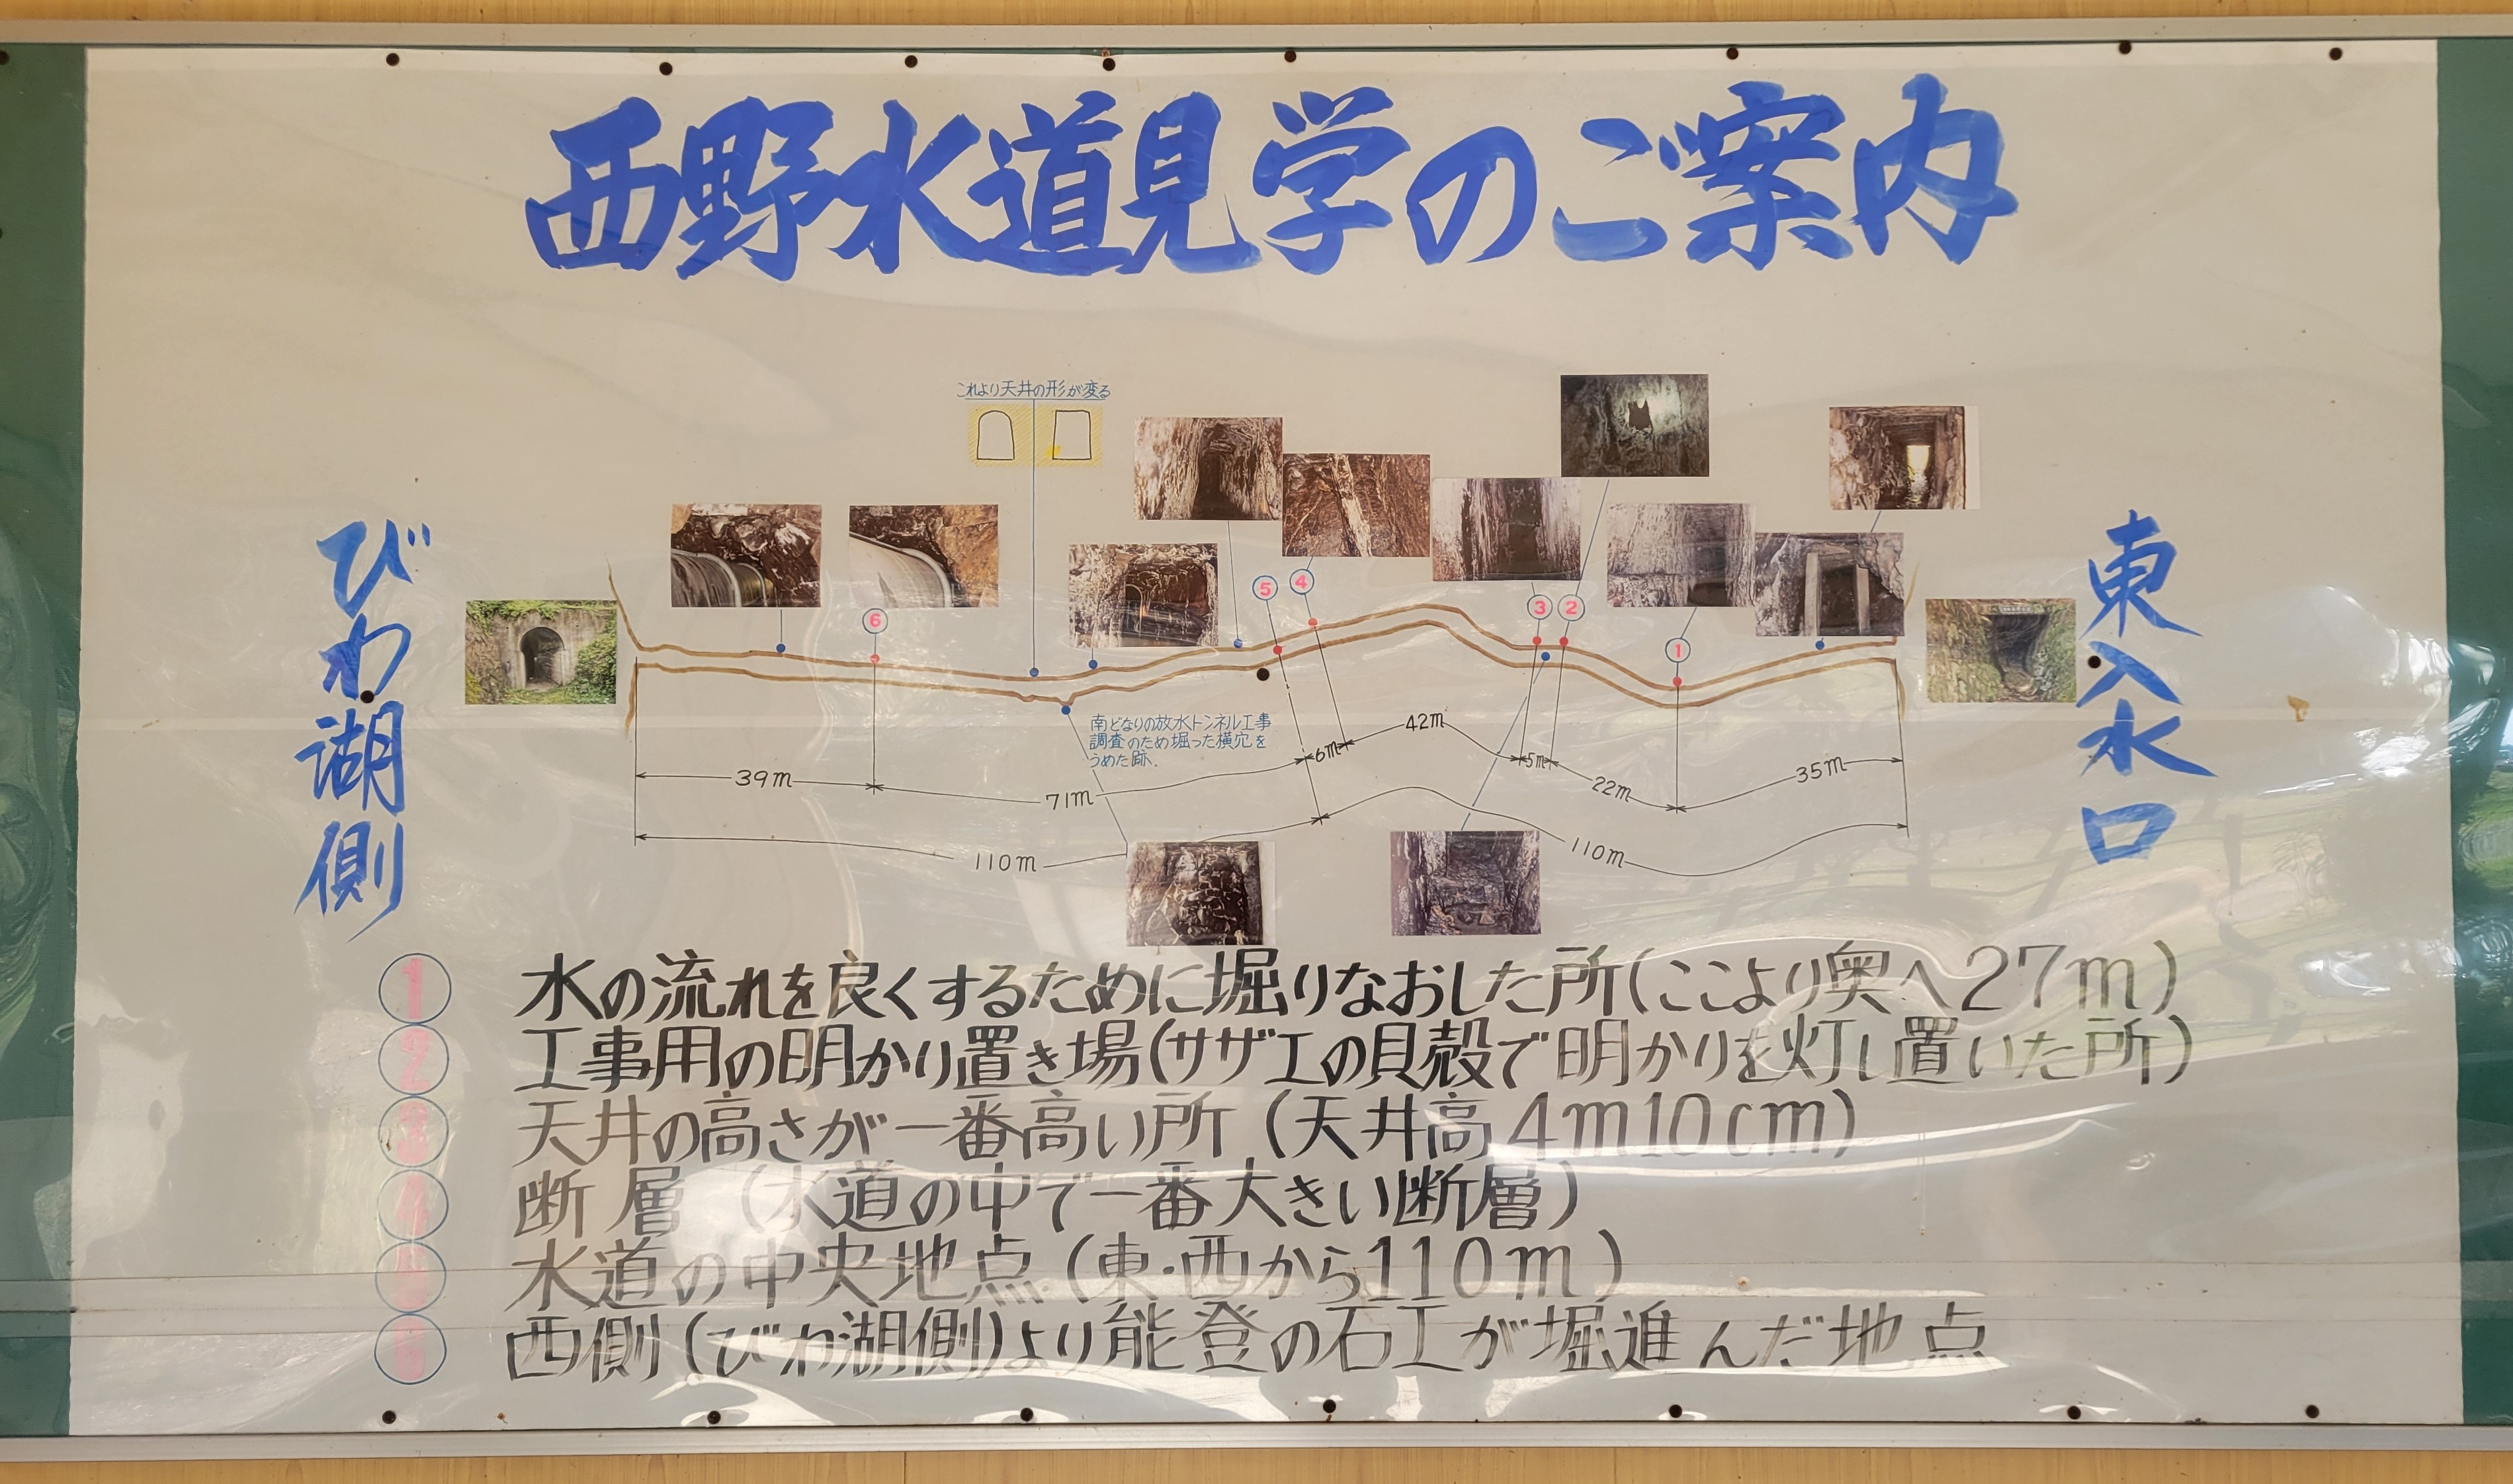 西野水道見学のご案内
これより天井の形が変る
びわ湖側
東入水口
6
5
4
3
2
1
南どなりの放水トンネル工事
調査のため堀った横穴を
うめた跡.
39m
71m
6m
42m
5m
22m
35m
110m
110m
1 水の流れを良くするために堀りなおした所(ここより奥へ27m)
2 工事用の明かり置き場(サザエの貝殻で明かりを灯し置いた所)
3 天井の高さが一番高い所(天井高4m10cm)
4 断層(水道の中で一番大きい断層)
5 水道の中央地点(東・西から110m)
6 西側(びわ湖側)より能登の石工が堀進んだ地点